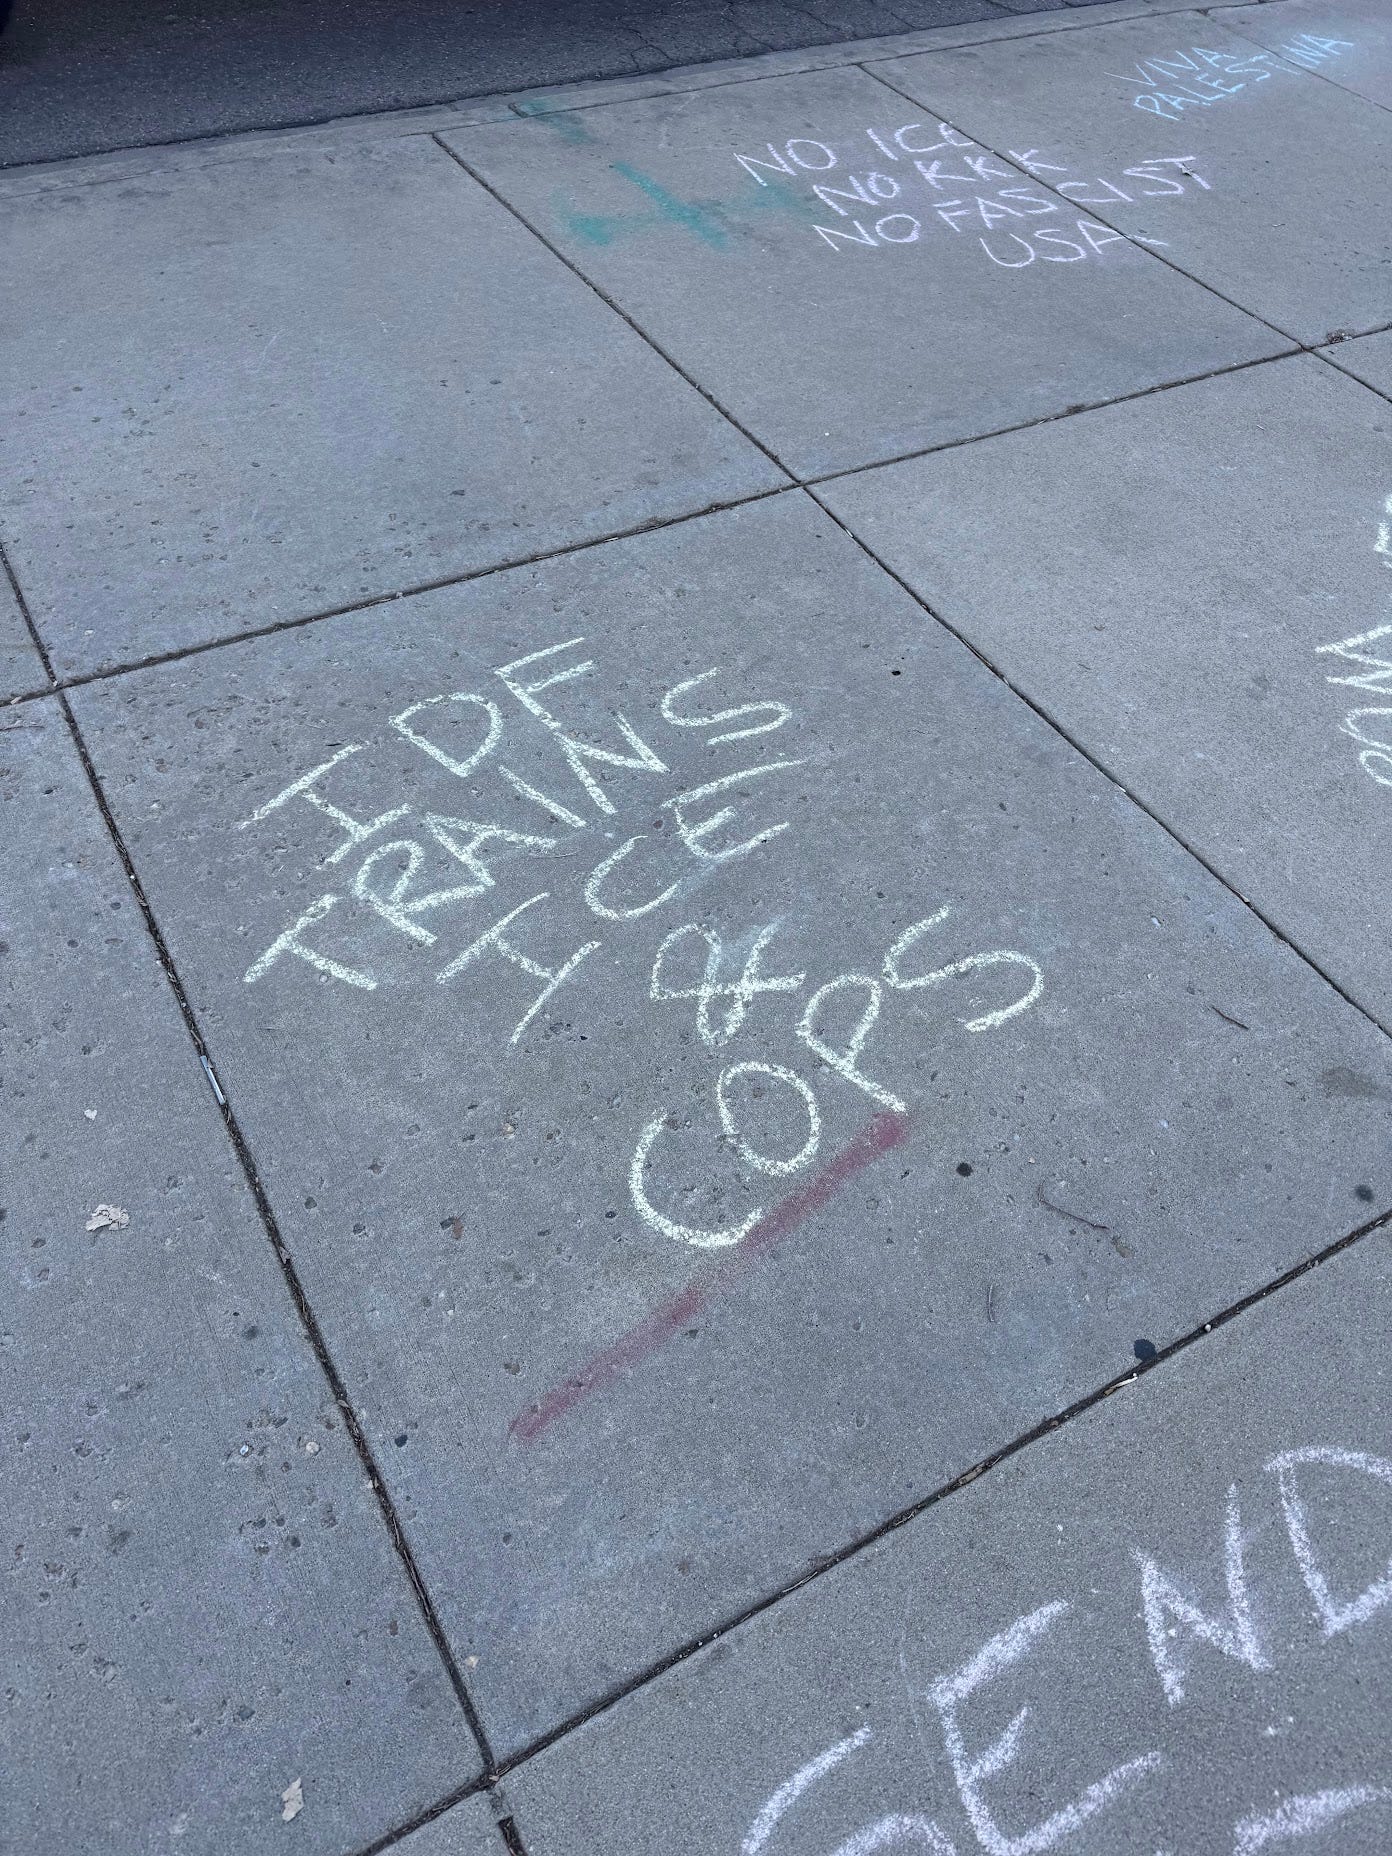 VIVA
PALESTINA
NO ICE
NO KKK
NO FASCIST
USA
IDF
TRAINS
ICE
&
COPS
SEND